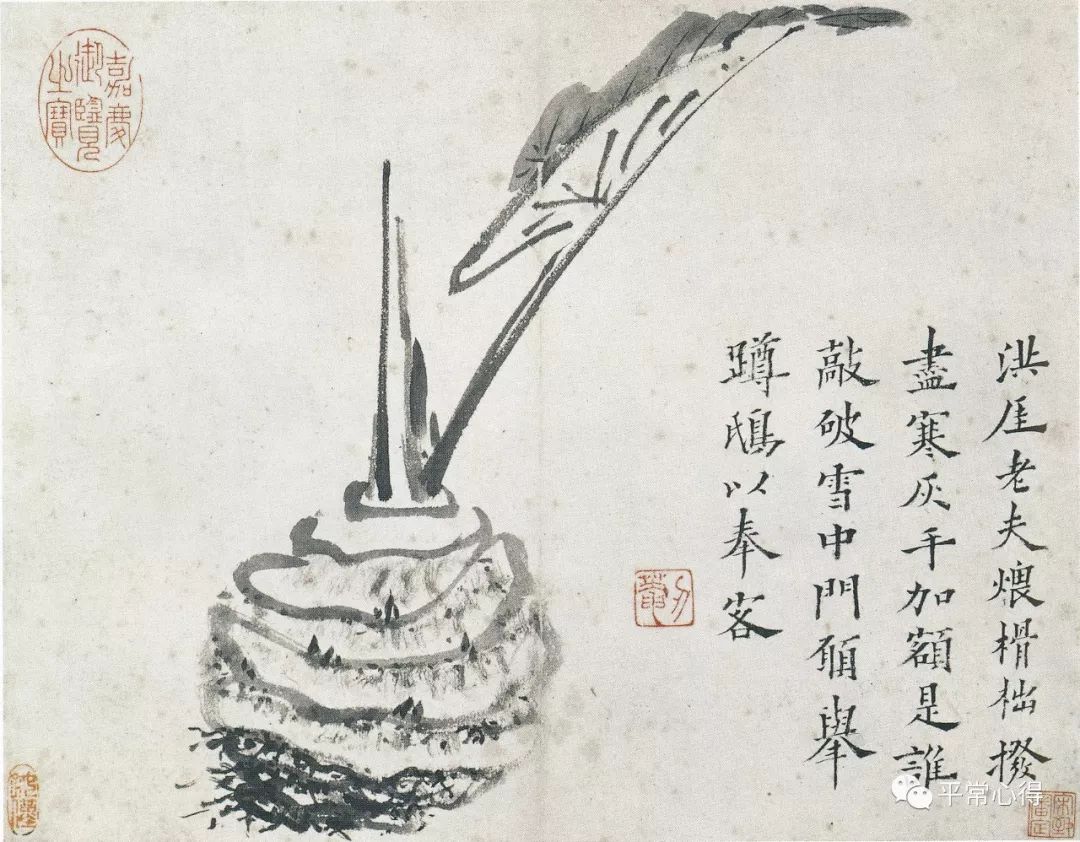 洪厓老夫煨榾柮撥
盡寒灰手加額是誰
敲破雪中門願舉
蹲鴟以奉客
刃菴
嘉慶
御覽
之寶
平常心得